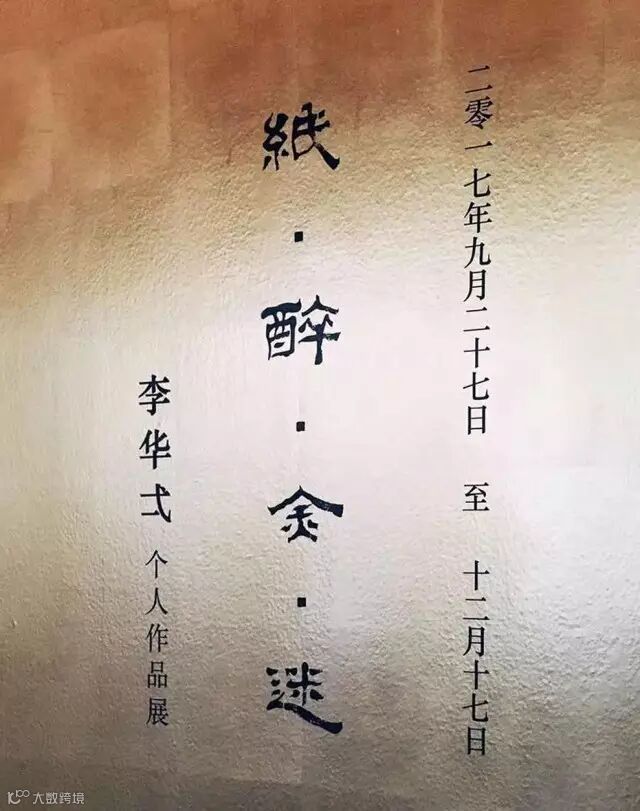 二零一七年九月二十七日 至 十二月十七日
紙·醉·金·迷
李华弌 个人作品展
大数跨境